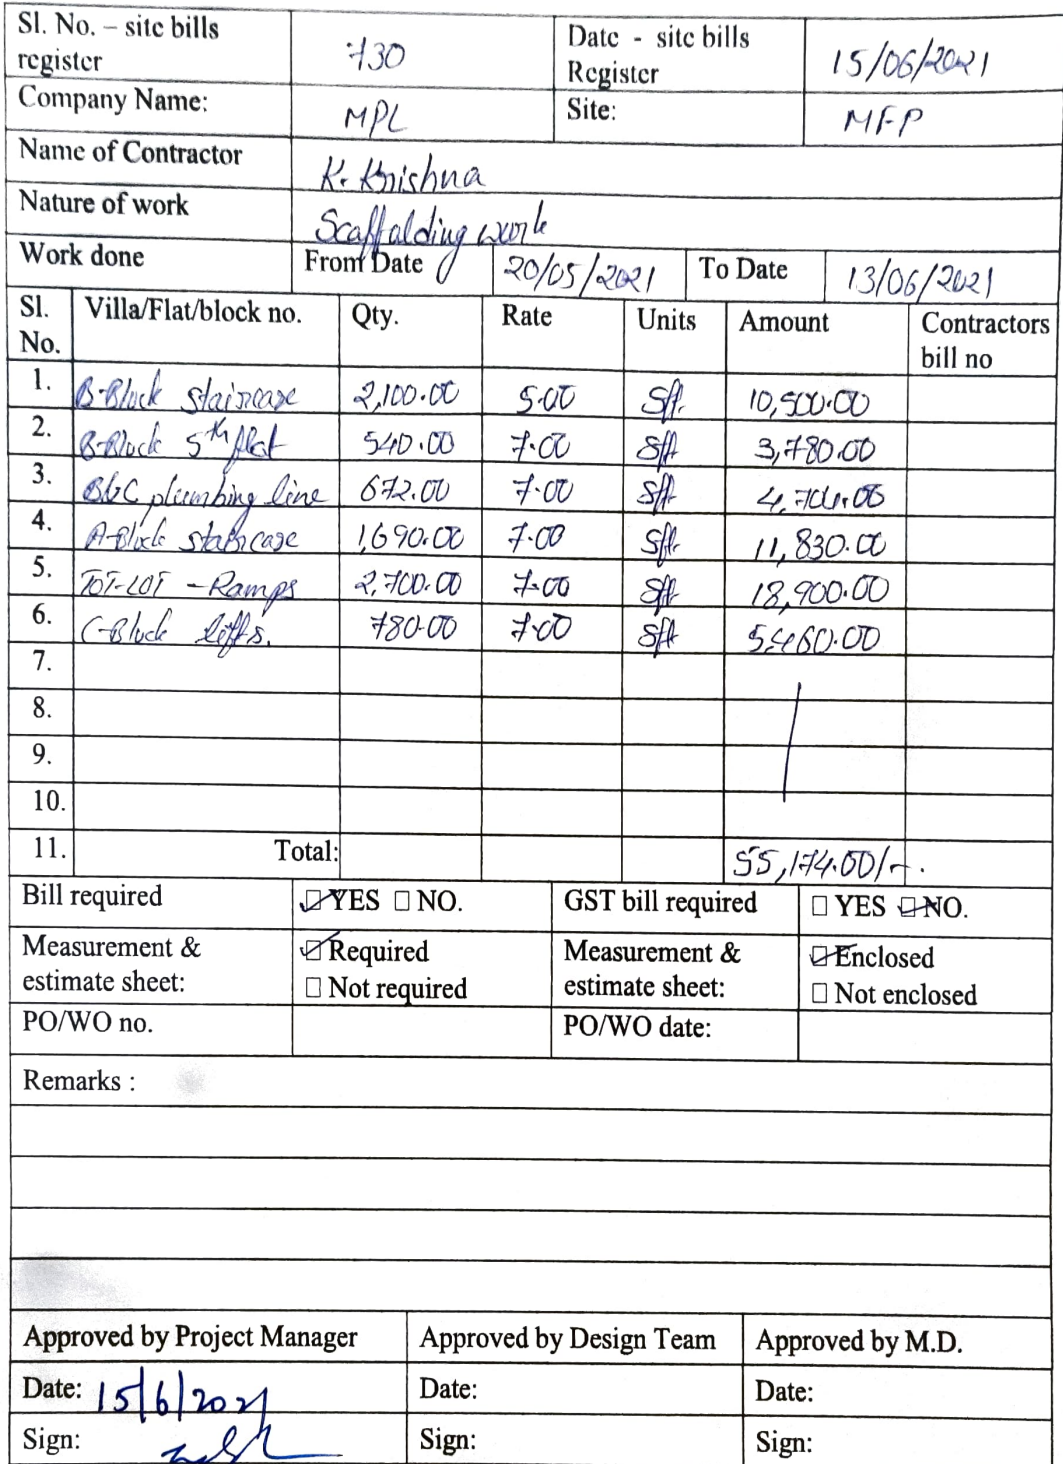 Sl. No. – site bills register 730 Date - site bills Register 15/06/2021
Company Name: MPL Site: MFP
Name of Contractor K. Krishna
Nature of work Scaffalding work
Work done From Date 20/05/2021 To Date 13/06/2021
Sl. No. Villa/Flat/block no. Qty. Rate Units Amount Contractors bill no
1. B-Block staircase 2,100.00 5.00 Sft. 10,500.00
2. B-Block 5th flat 540.00 7.00 Sft 3,780.00
3. B&C plumbing line 672.00 7.00 Sft. 4,704.00
4. A-Block staircase 1,690.00 7.00 Sft. 11,830.00
5. TOT-LOT - Ramps 2,700.00 7.00 Sft 18,900.00
6. C-Block lifts. 780.00 7.00 Sft 5,460.00
7.
8.
9.
10.
11. Total: 55,174.00/-.
Bill required ☑ YES ☐ NO. GST bill required ☐ YES ☑ NO.
Measurement & estimate sheet: ☑ Required ☐ Not required Measurement & estimate sheet: ☑ Enclosed ☐ Not enclosed
PO/WO no. PO/WO date:
Remarks :
Approved by Project Manager Approved by Design Team Approved by M.D.
Date: 15/6/2021 Date: Date:
Sign: Sign: Sign: